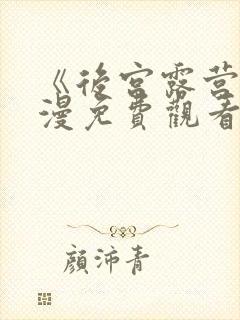 《後宮露营
漫免費觀看
顏沛青